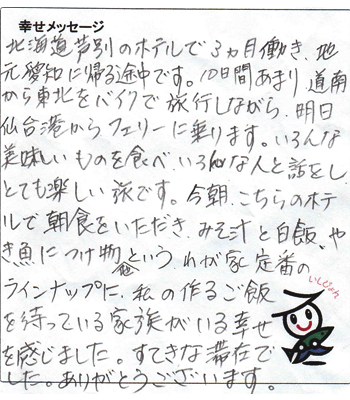 幸せメッセージ
北海道芦別のホテルで3ヵ月働き、地
元愛知に帰る途中です。10日間あまり道南
から東北をバイクで旅行しながら、明日
仙台港からフェリーに乗ります。いろんな
美味しいものを食べ、いろんな人と話をし、
とても楽しい旅です。今朝、こちらのホテ
ルで朝食をいただき、みそ汁と白飯、や
き魚につけ物という、わが家定番の
ラインナップに、私の作るご飯
を待っている家族がいる幸せ
を感じました。すてきな滞在で
した。ありがとうございます。
いしぴょん